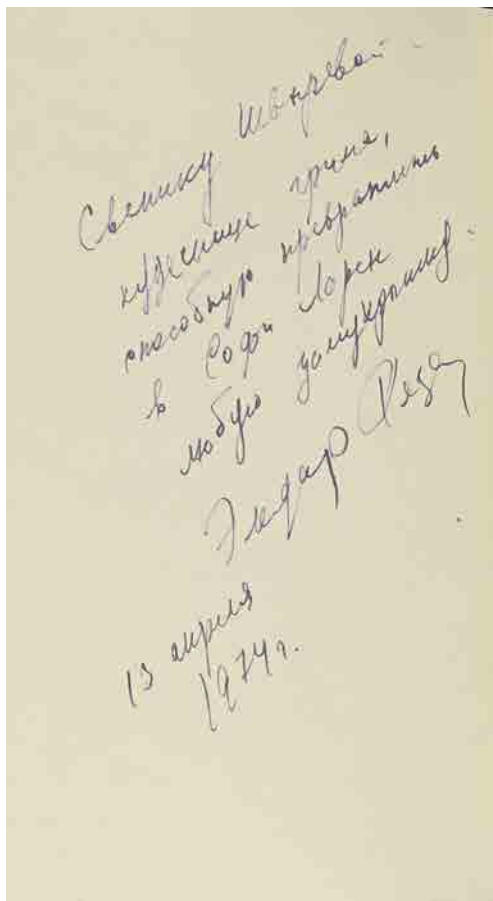 Светику
кудеснице грима,
способную превратить
в Софи Лорен
любую замухрышку.
Эльдар Ряза
13 апреля
1974г.